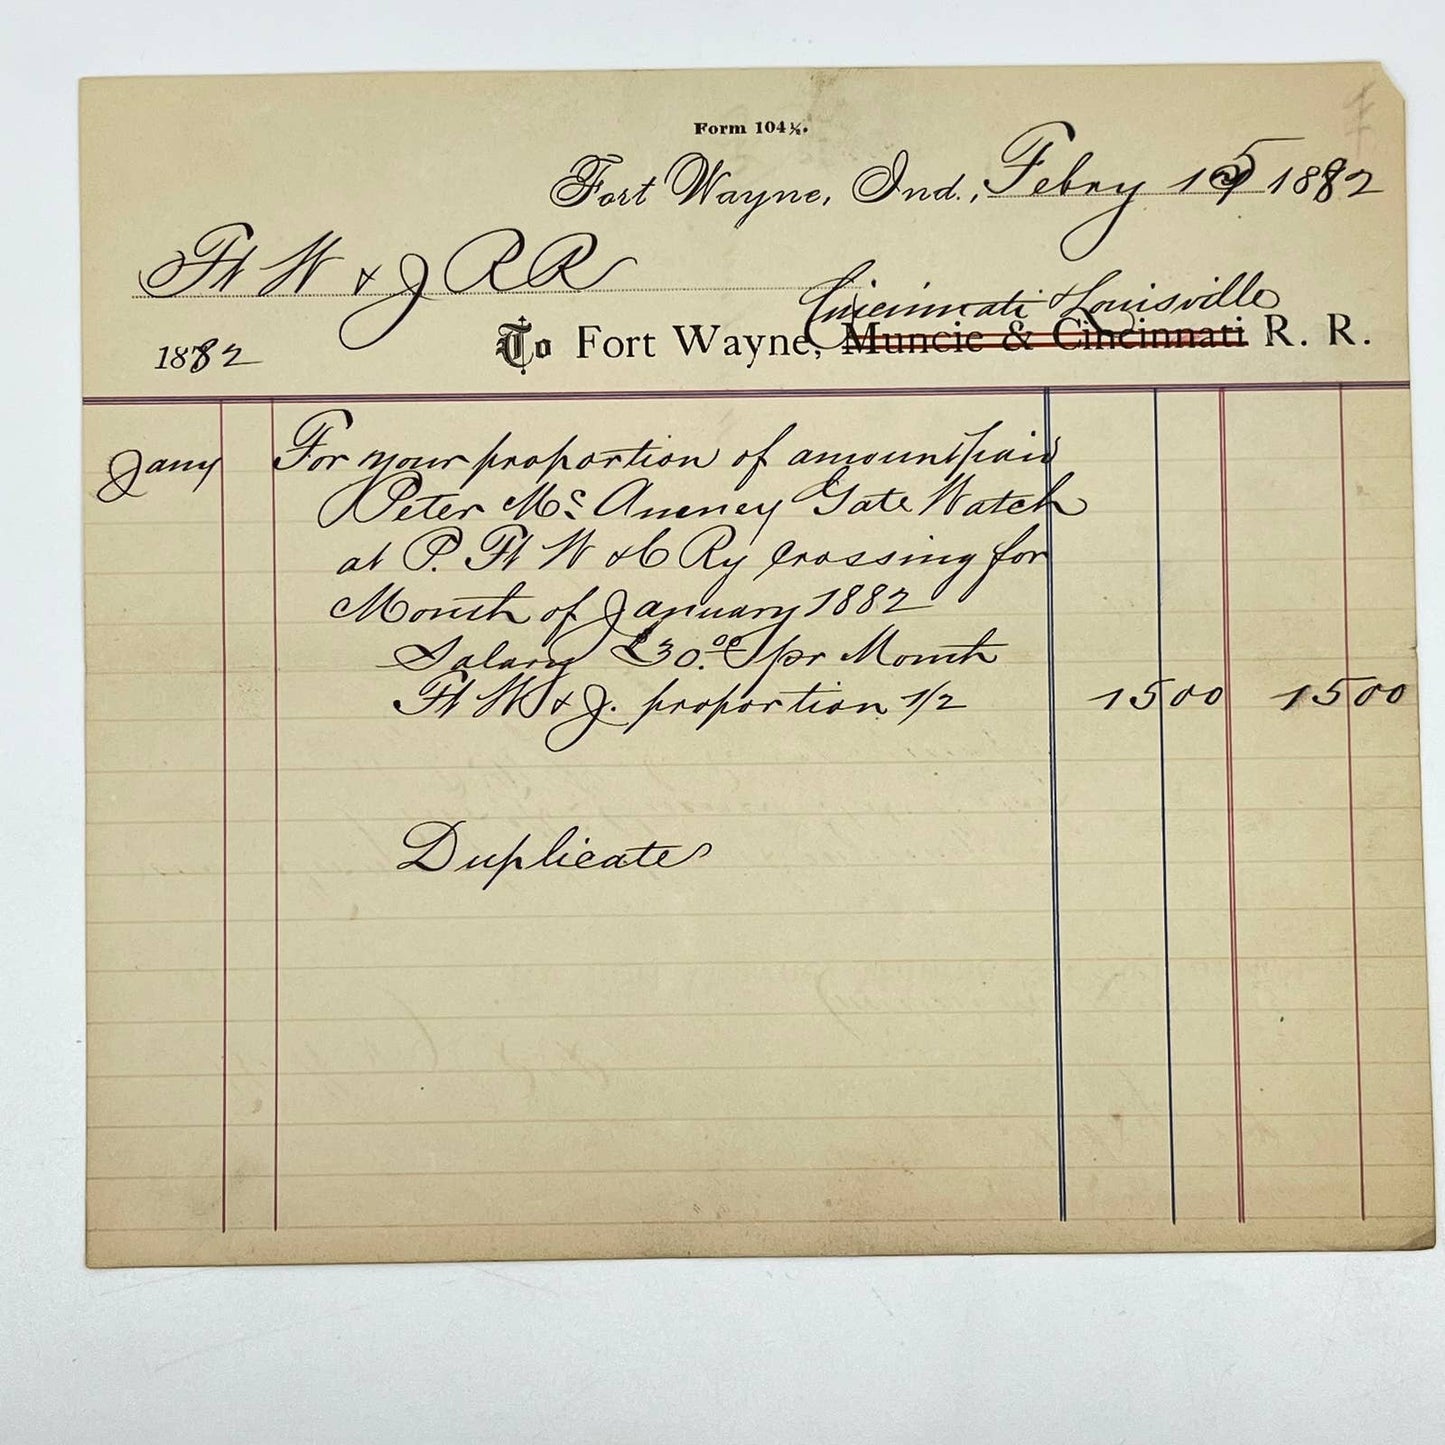 Form 104½.
Fort Wayne, Ind., Febry 15 1882
Ft W & J RR
Cincinnati & Louisville
1882 To Fort Wayne, Muncie & Cincinnati R. R.
Jany For your proportion of amount paid
Peter Mc Aneney Gate Watch
at P. Ft W & C Ry Crossing for
Month of January 1882
Salary $30.00 pr Month
Ft W & J. proportion 1/2 15 00 15 00
Duplicate